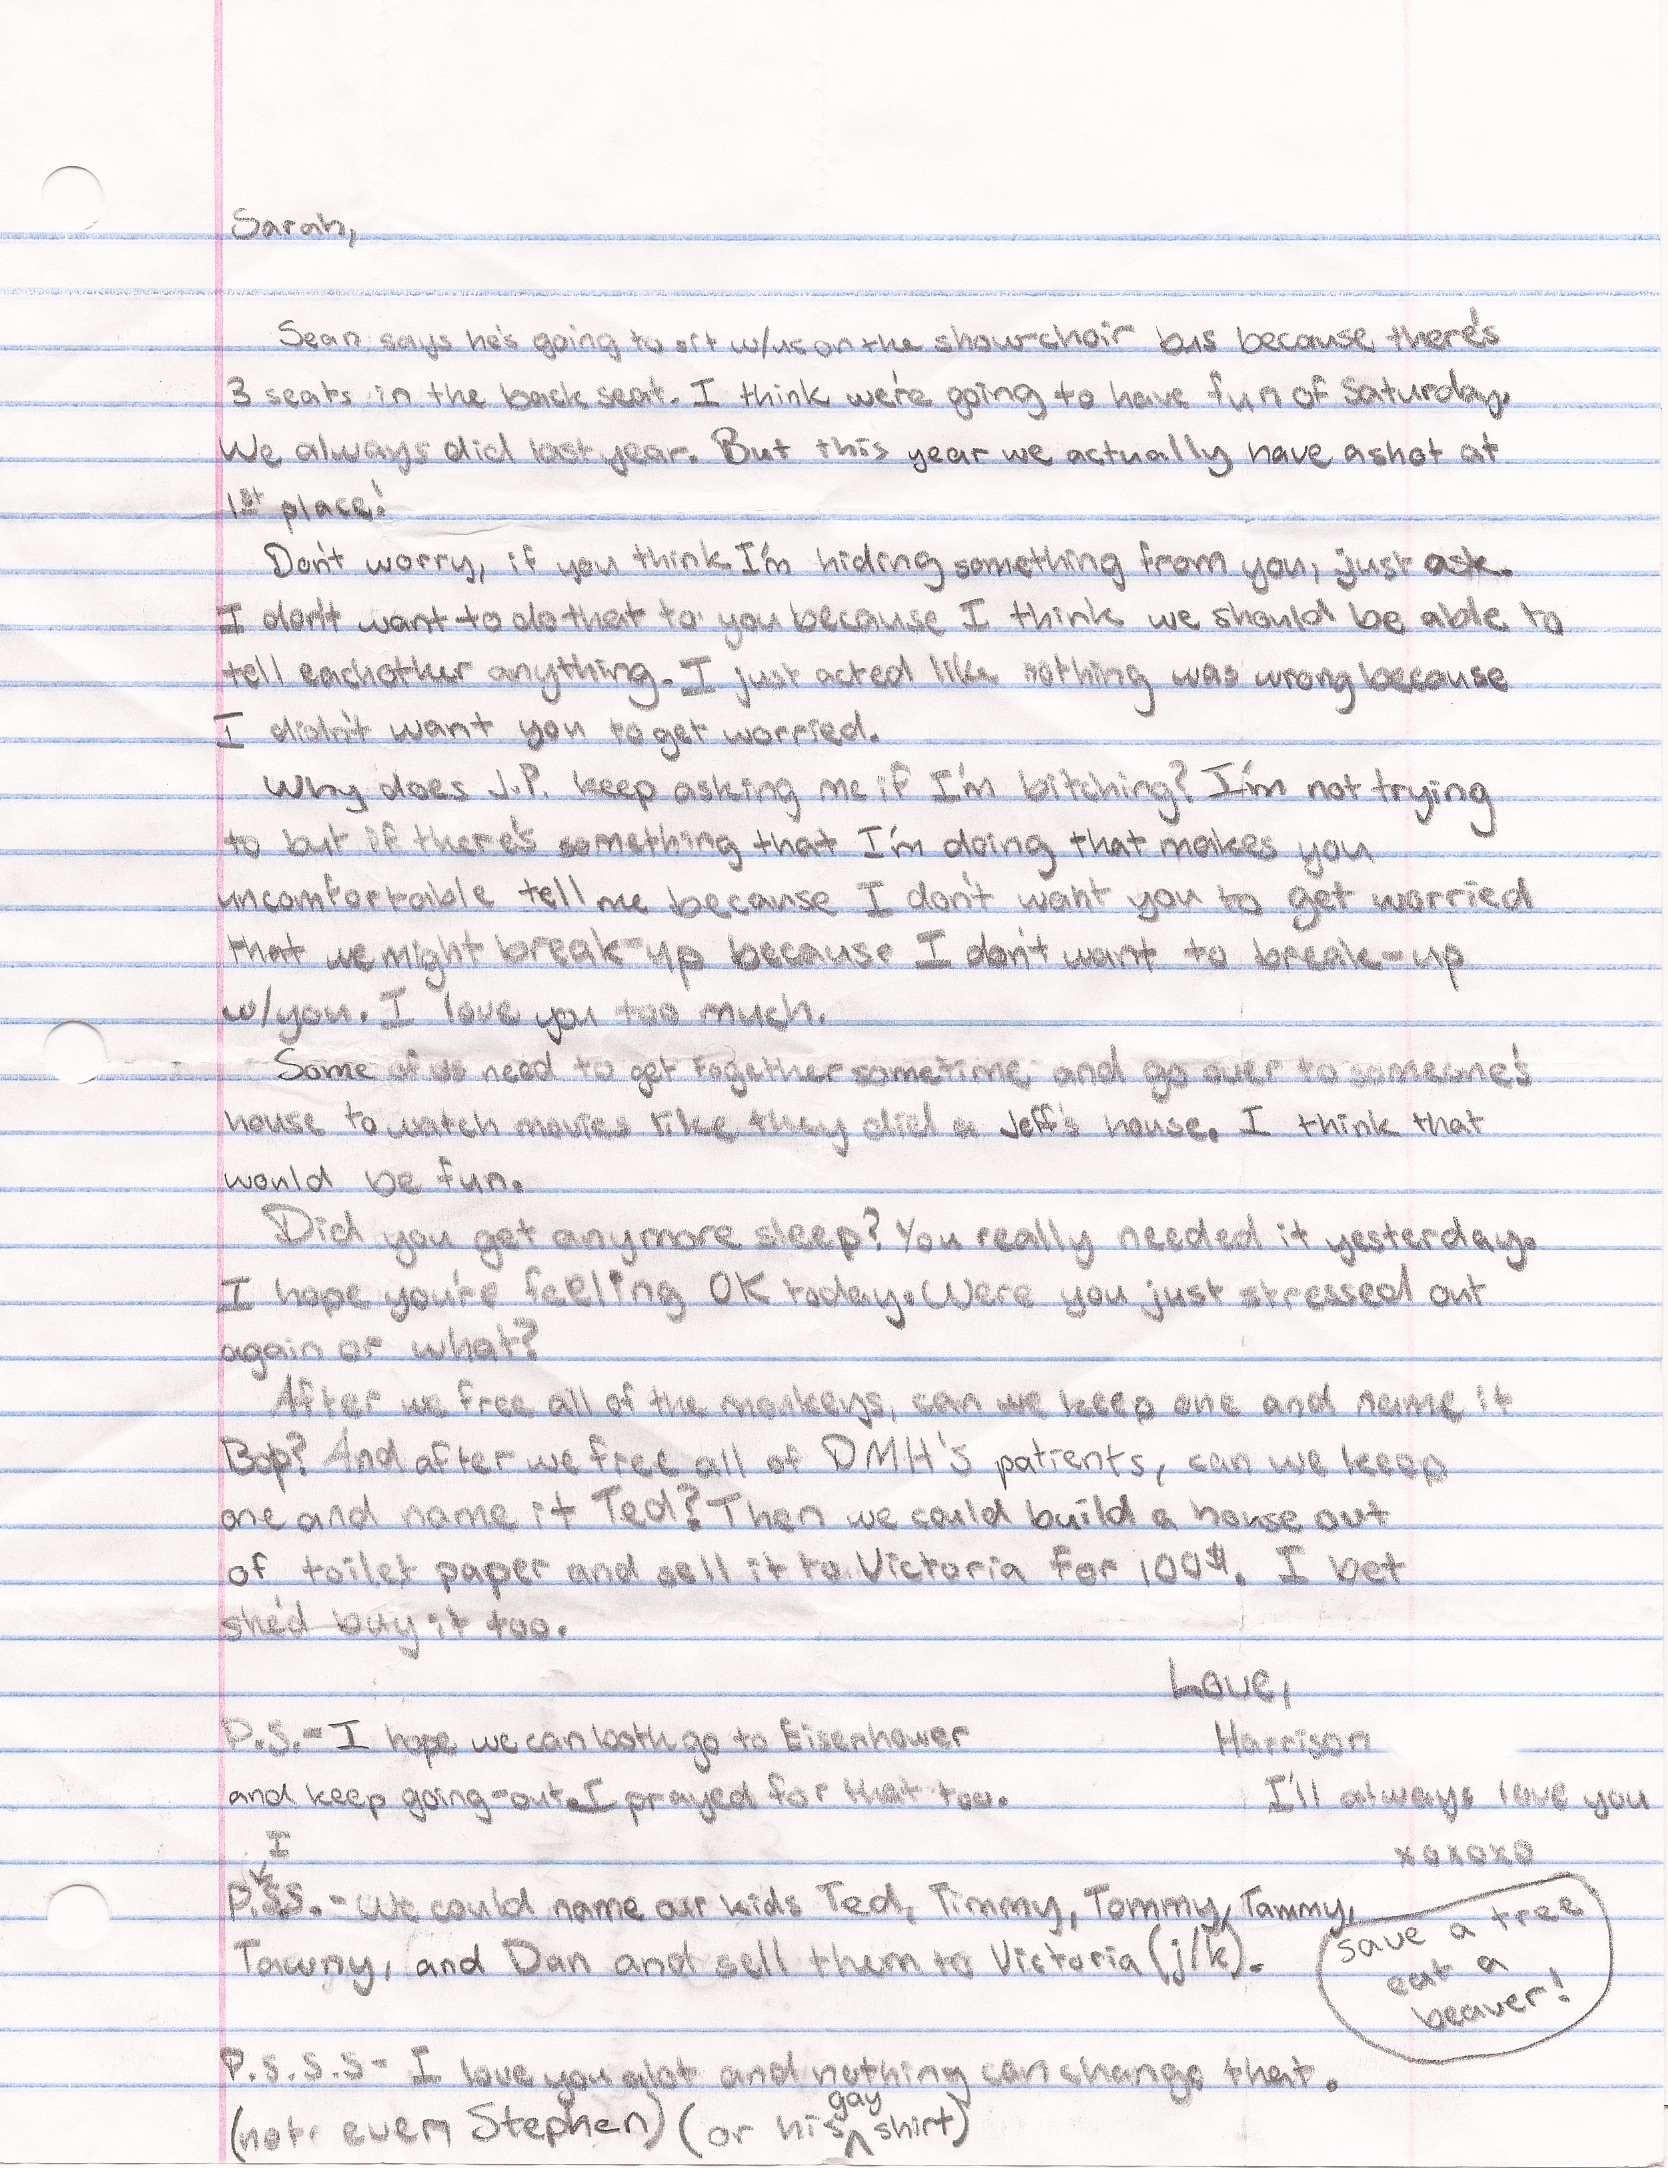 Sarah,
Sean says he's going to sit w/us on the show-choir bus because there's
3 seats in the back seat. I think we're going to have fun of Saturday.
We always did last year. But this year we actually have a shot at
1st place!
Don't worry, if you think I'm hiding something from you, just ask.
I don't want to do that to you because I think we should be able to
tell eachother anything. I just acted like nothing was wrong because
I didn't want you to get worried.
Why does J.P. keep asking me if I'm bitching? I'm not trying
to but if there's something that I'm doing that makes you
uncomfortable tell me because I don't want you to get worried
that we might break-up because I don't want to break-up
w/you. I love you too much.
Some of us need to get together sometime and go over to someone's
house to watch movies like they did a Jeff's house. I think that
would be fun.
Did you get anymore sleep? You really needed it yesterday.
I hope you're feeling OK today. Were you just stressed out
again or what?
After we free all of the monkeys, can we keep one and name it
Bop? And after we free all of DMH's patients, can we keep
one and name it Ted? Then we could build a house out
of toilet paper and sell it to Victoria for 100$. I bet
she'd buy it too.
Love,
P.S.- I hope we can both go to Eisenhower
Harrison
and keep going-out. I prayed for that too.
I'll always love you
I
xoxoxo
P.S.S. - We could name our kids Ted, Timmy, Tommy, Tammy,
Tawny, and Dan and sell them to Victoria (j/k).
save a tree
eat a
beaver!
P.S.S.S - I love you alot and nothing can change that.
(not even Stephen) (or his gay shirt)